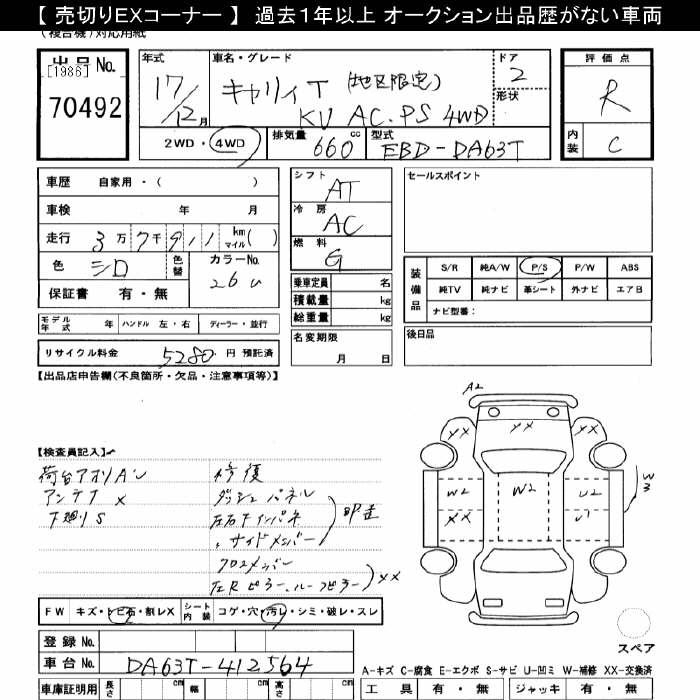 【 売切りEXコーナー 】 過去１年以上 オークション出品歴がない車両
(複合機)対応用紙
出品 No.
[1986]
70492
年式
17/12月
車名・グレード
キャリィT (地区限定)
KU AC.PS 4WD
ドア
2
形状
評価点
R
内装
C
2WD・4WD
排気量
660 cc
型式
EBD-DA63T
車歴 自家用・( )
車検 年 月
走行 3万7千911 km マイル( )
色 シロ 色替 カラーNo. 26U
保証書 有・無
モデル年式 年 ハンドル 左・右 ディーラー・並行
リサイクル料金 5280 円 預託済
シフト
AT
冷房
AC
燃料
G
乗車定員 名
積載量 kg
総重量 kg
名変期限
月 日
セールスポイント
装備品
S/R 純A/W P/S P/W ABS
純TV 純ナビ 革シート 外ナビ エアB
ナビ型番：
後日品
【出品店申告欄(不良箇所・欠品・注意事項等)】
【検査員記入】
荷台アオリAU
アンテナ X
下廻りS
修復
ダッシュパネル
左右下インパネ
サイドメンバー
印走
クロスメンバー
左Rピラー、ルーフピラー
XX
A2
XX
XX
XX
W2
XX
W2
U2
U1
W3
スペア
FW キズ・トビ石・割レX シート内装 コゲ・穴・汚レ・シミ・破レ・スレ
登録 No.
車台 No. DA63T-412564
車庫証明用 長さ cm 幅 cm 高さ cm
A-キズ C-腐食 E-エクボ S-サビ U-凹ミ W-補修 XX-交換済
工具 有・無 ジャッキ 有・無